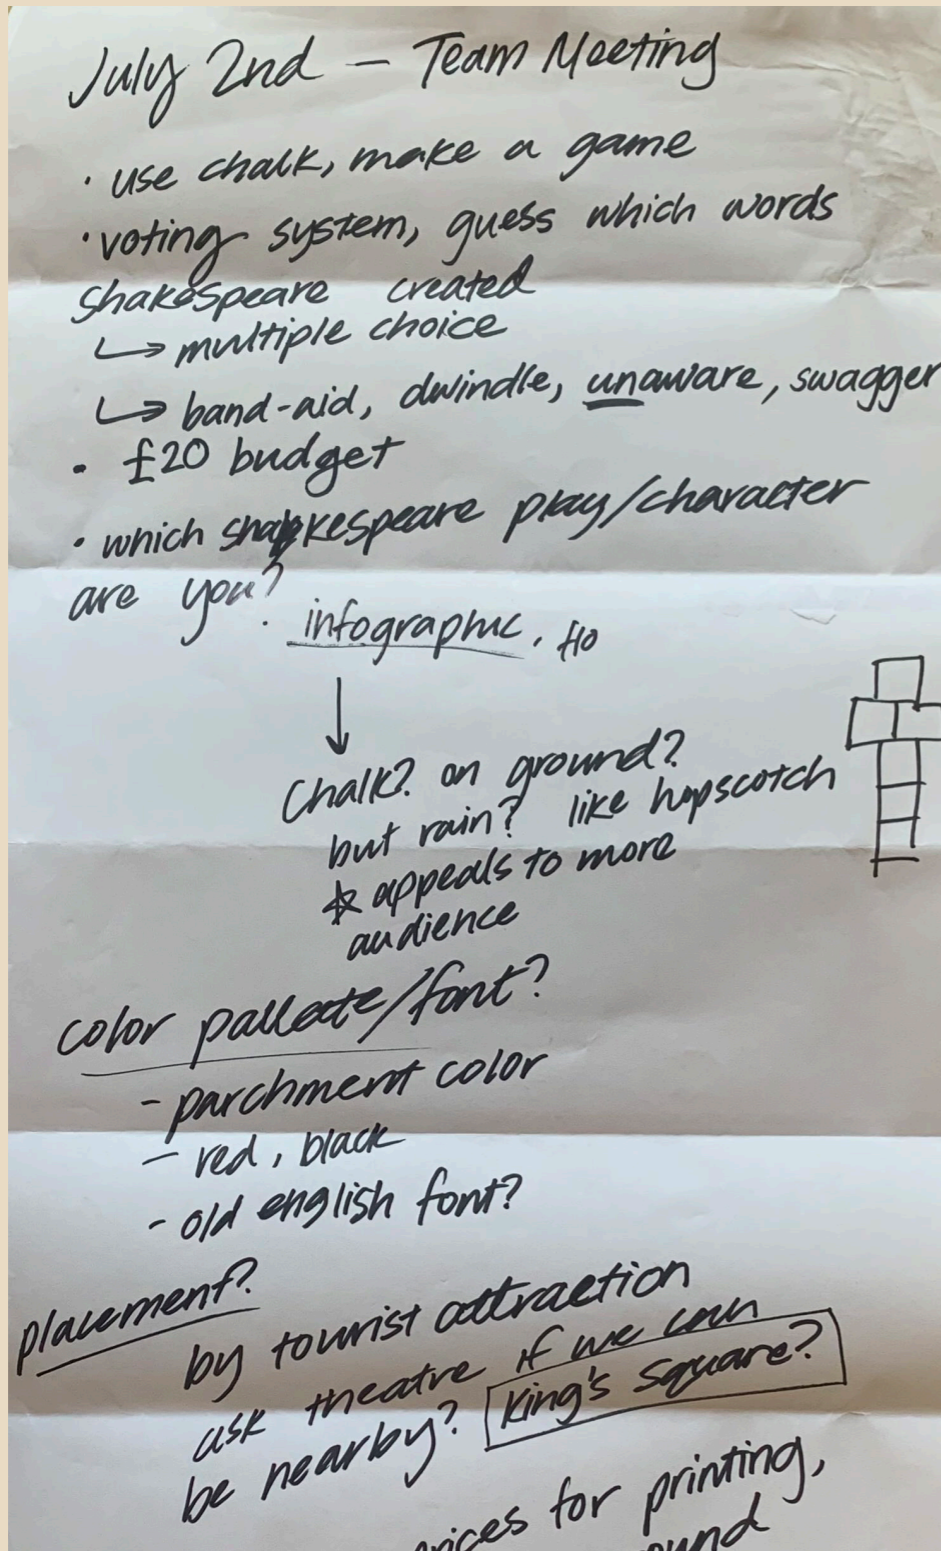 July 2nd - Team Meeting
· use chalk, make a game
· voting system, guess which words
shakespeare created
↳ multiple choice
↳ band-aid, dwindle, unaware, swagger
· £20 budget
· which shakespeare play/character
are you?
· infographic.
↓
Chalk? on ground?
but rain? like hopscotch
☆ appeals to more
audience
color pallete/font?
- parchment color
- red, black
- old english font?
placement?
by tourist attraction
ask theatre if we can
be nearby? King's Square?
for printing,